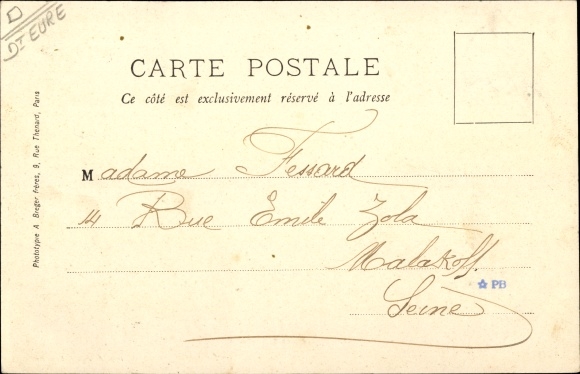 D
DT EURE
CARTE POSTALE
Ce côté est exclusivement réservé à l'adresse
Madame Fessard
14 Rue Emile Zola
Malakoff
Seine
PB
Phototypie A Breger Frères, 9, Rue Thenard, Paris